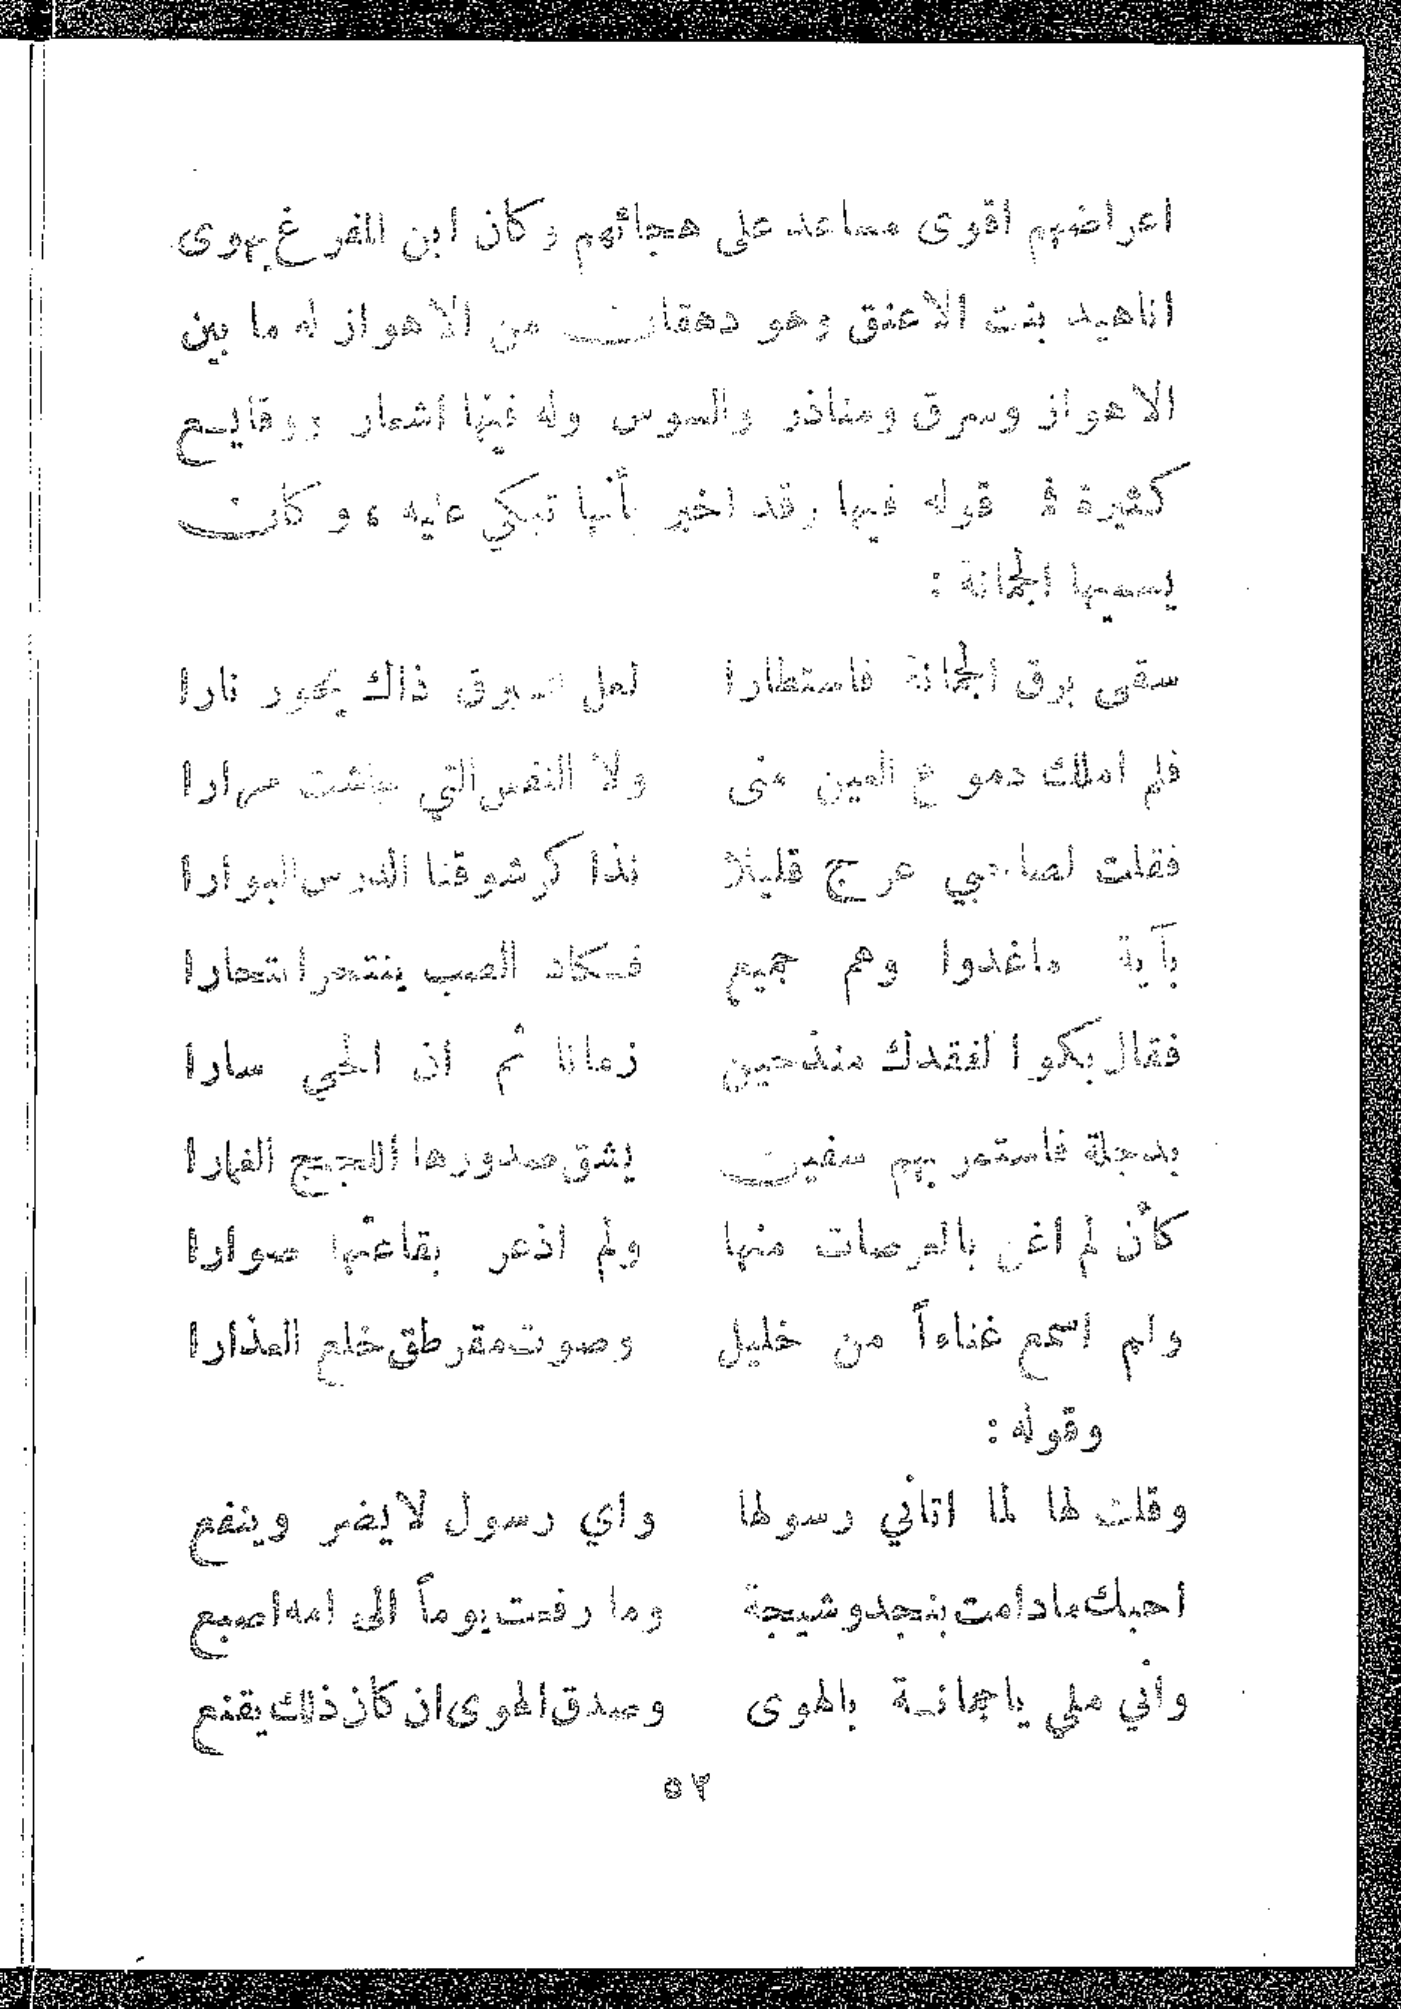 اعراضهم اقوى مساعد على هجائهم وكان ابن المفرغ يهوى
اناهيد بنت الاعنق وهو دهقان من الاهواز له ما بين
الاهواز وسرق ومناذر والسوس وله فيها اشعار ووقايع
كثيرة قوله فيها وقد اخبر بأنها تبكي عليه ، وكان
يسميها الجمانة :
سقى برق الجمانة فاستطارا لعل البرق ذاك يحور نارا
فلم املك دموع العين منى ولا النفس التي جاشت مرارا
فقلت لصاحبي عرج قليلا نذاكر شوقنا الدرس البوارا
بآية ماغدوا وهم جميع فكاد الصب ينتحر انتحارا
فقال بكوا لفقدك منذ حين زمانا ثم ان الحي سارا
بدجلة فاستمر بهم سفين يشق صدورها اللجج الغمارا
كأن لم اغن بالعرصات منها ولم اذعر بقاعتها صوارا
ولم اسمع غناءاً من خليل وصوت مقرطق خلع العذارا
وقوله :
وقلت لها لما اتاني رسولها واي رسول لا يضر وينفع
احبك مادامت بنجد وشيجة وما رفعت يوماً الى امه اصبع
وأني ملي ياجمانة بالهوى وصدق الهوى ان كان ذلك يقنع
٥٢